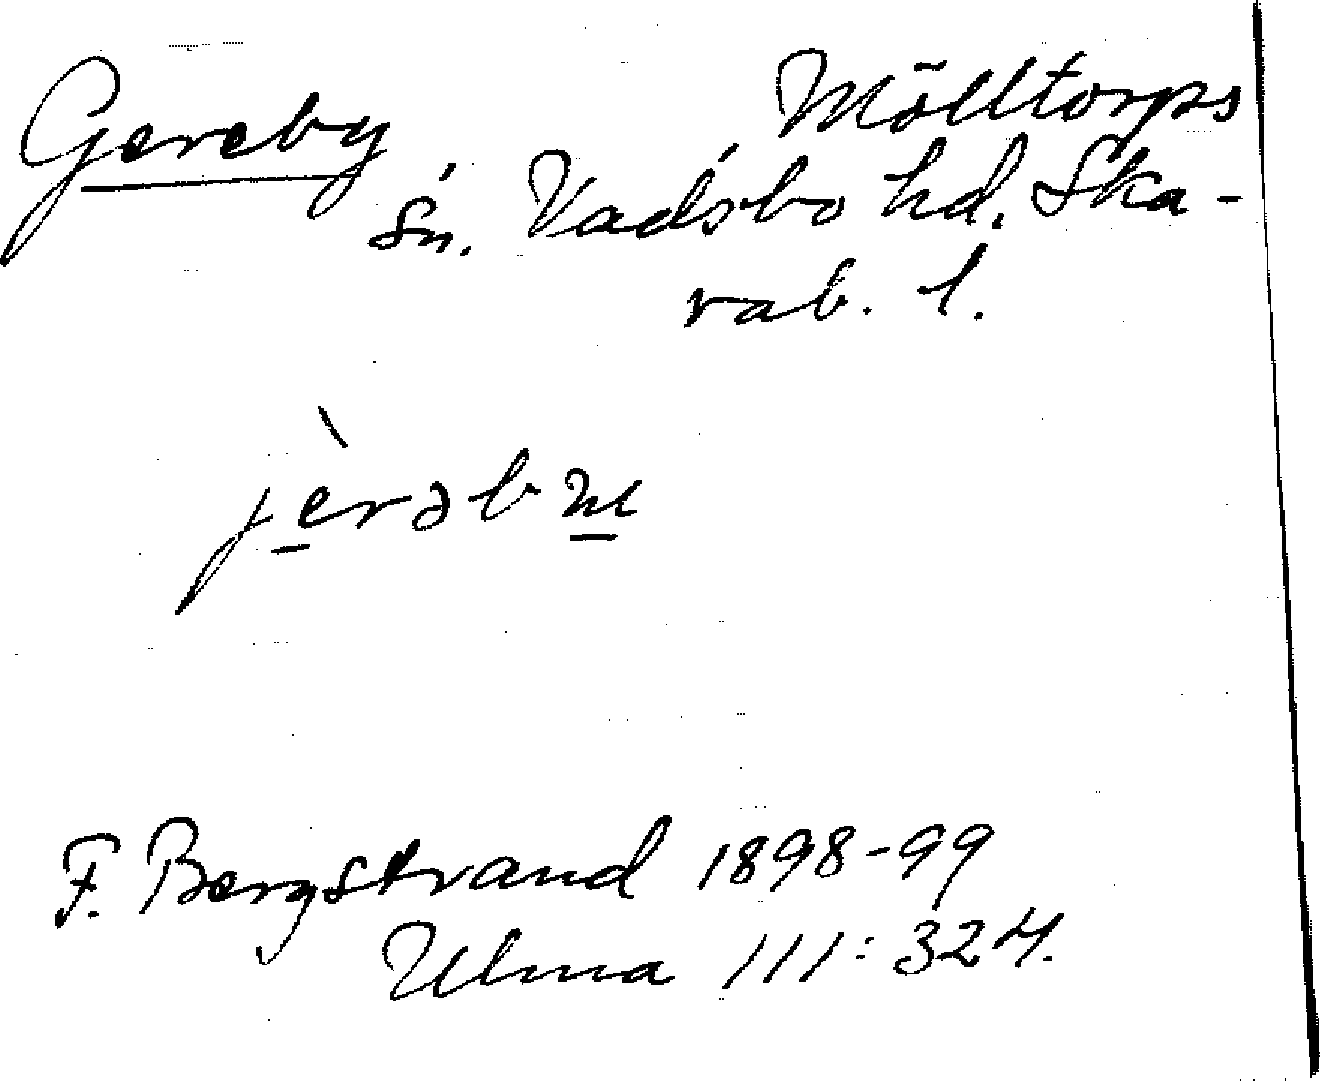 Gereby Mölltorps
sn. Vadsbo hd. Ska-
rab. l.
jèrəbʯ
F. Bergstrand 1898-99
Ulma 111:324.